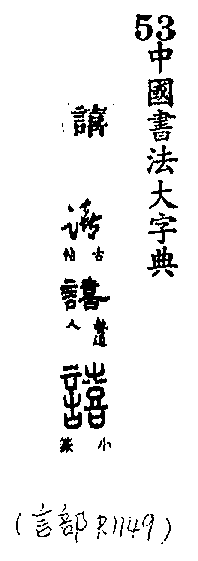 53
中國書法大字典
譆
譆
譆
譆
小篆
(言部 P.1149)